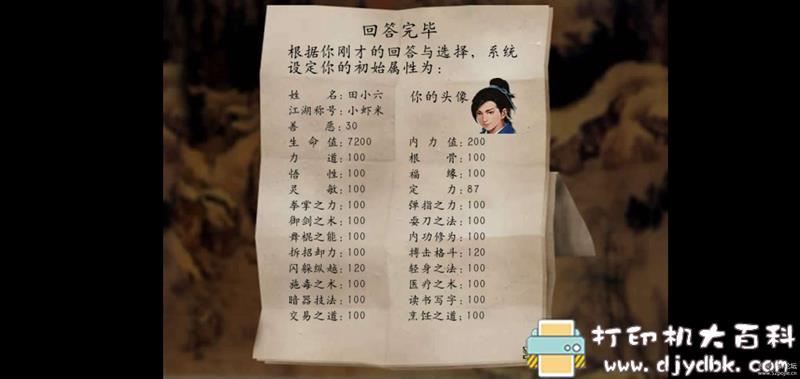 回答完毕
根据你刚才的回答与选择，系统
设定你的初始属性为：
姓 名：田小六 你的头像
江湖称号：小虾米
善 恶：30
生 命 值：7200 内 力 值：200
力 道：100 根 骨：100
悟 性：100 福 缘：100
灵 敏：100 定 力：87
拳掌之力：100 弹指之力：100
御剑之术：100 耍刀之法：100
舞棍之能：100 内功修为：100
拆招卸力：100 搏击格斗：120
闪躲纵越：120 轻身之法：100
施毒之术：100 医疗之术：100
暗器技法：100 读书写字：100
交易之道：100 烹饪之道：100
打印机大百科
www.djydbk.com